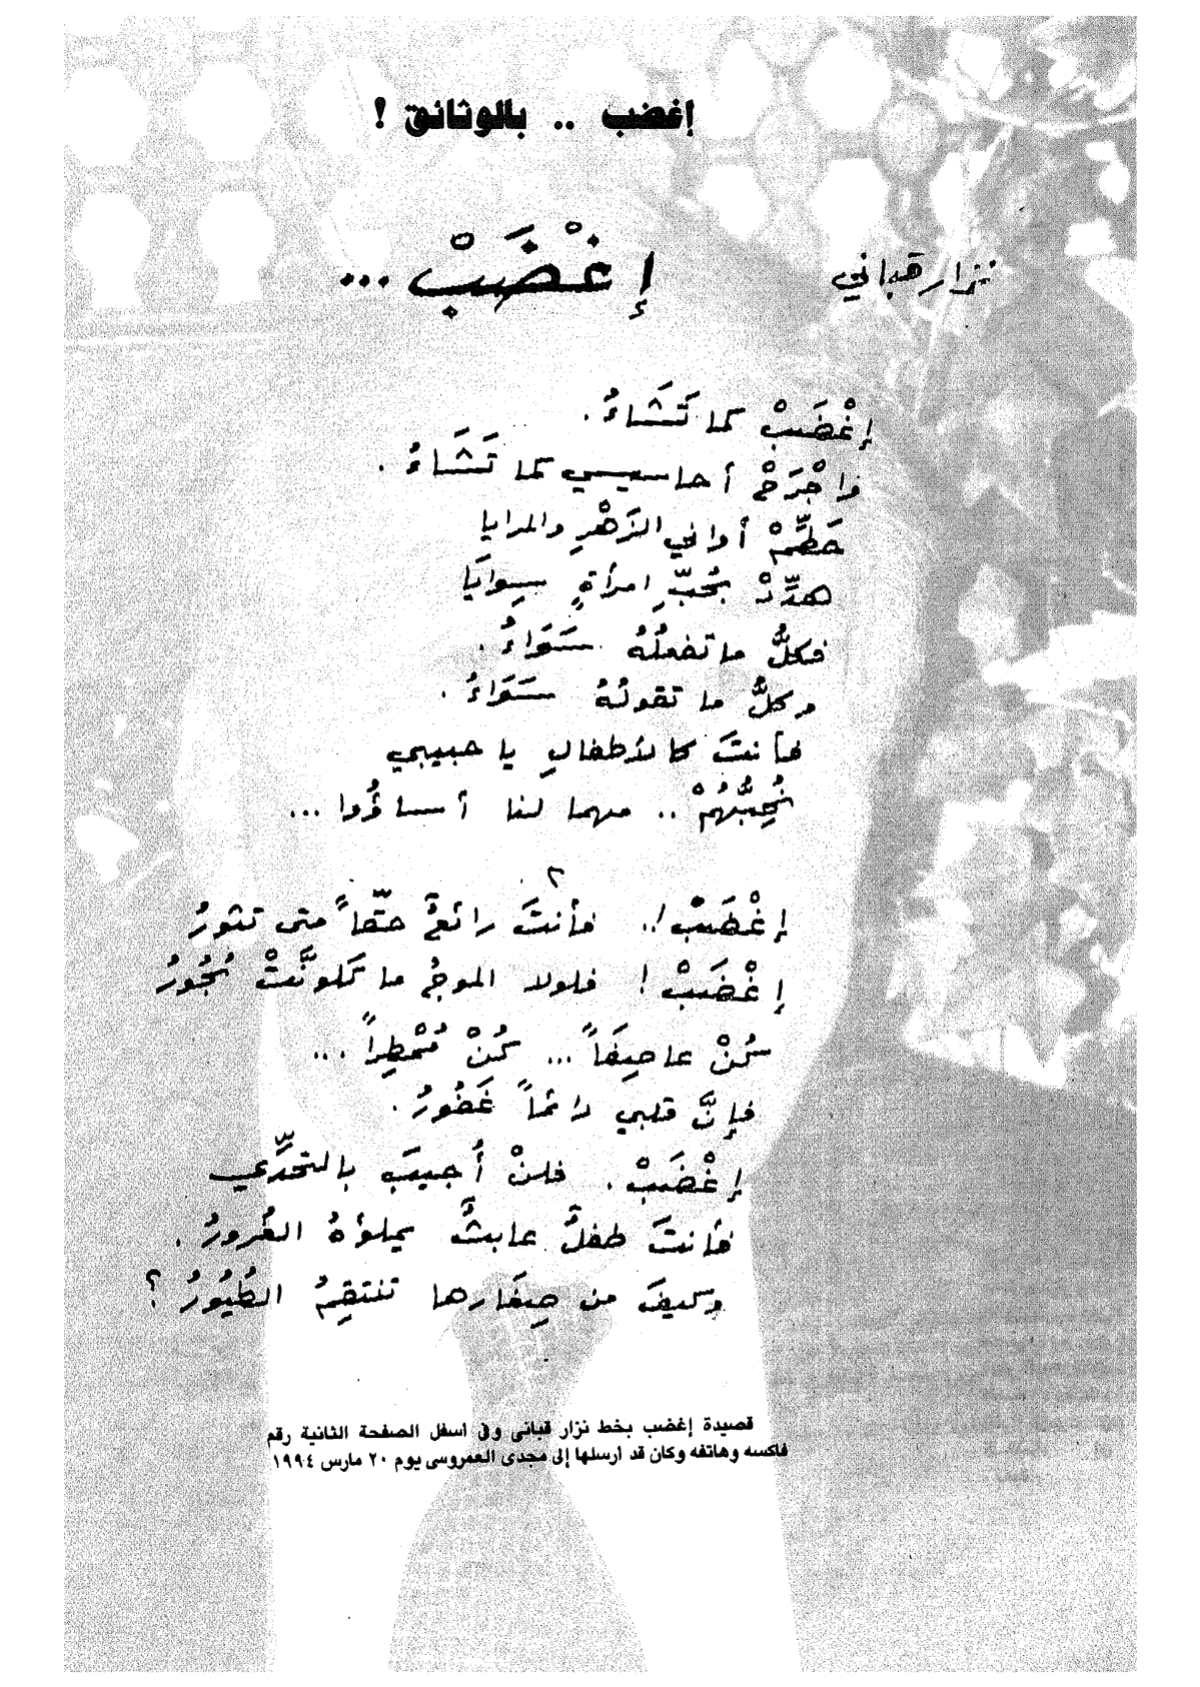 إغضب .. بالوثائق !
نزار قباني
إغْضَبْ ...
إغْضَبْ كما تَشَاءُ .
واجْرَحْ أحاسيسي كما تَشَاءُ .
حَطِّمْ أواني الزَهْرِ والمرايا
هدِّدْ بحُبِّ امرأةٍ سِوايَا
فكلُّ ما تفعلُهُ سَوَاءُ .
وكلُّ ما تقولُهُ سَوَاءُ .
فأنتَ كالأطفالِ يا حبيبي
نُحِبُّهُمْ .. مهما لنا أساؤُوا ...
٢
إغْضَبْ !.. فأنتَ رائعٌ حقّاً متى تثورُ
إغْضَبْ ! فلولا الموجُ ما تكونَّتْ بُحُورُ
كُنْ عاصِفَاً ... كُنْ مُمْطِراً ...
فإنَّ قلبي دائماً غَفُورُ .
إغْضَبْ . فلنْ أُجيبَ بالتحدِّي
فأنتَ طفلٌ عابثٌ يملؤهُ الغُرورُ .
وكيفَ من صِغَارها تنتقِمُ الطُيُورُ ؟
قصيدة إغضب بخط نزار قبانى وفى أسفل الصفحة الثانية رقم
فاكسه وهاتفه وكان قد أرسلها إلى مجدى العمروسى يوم ٢٠ مارس ١٩٩٤